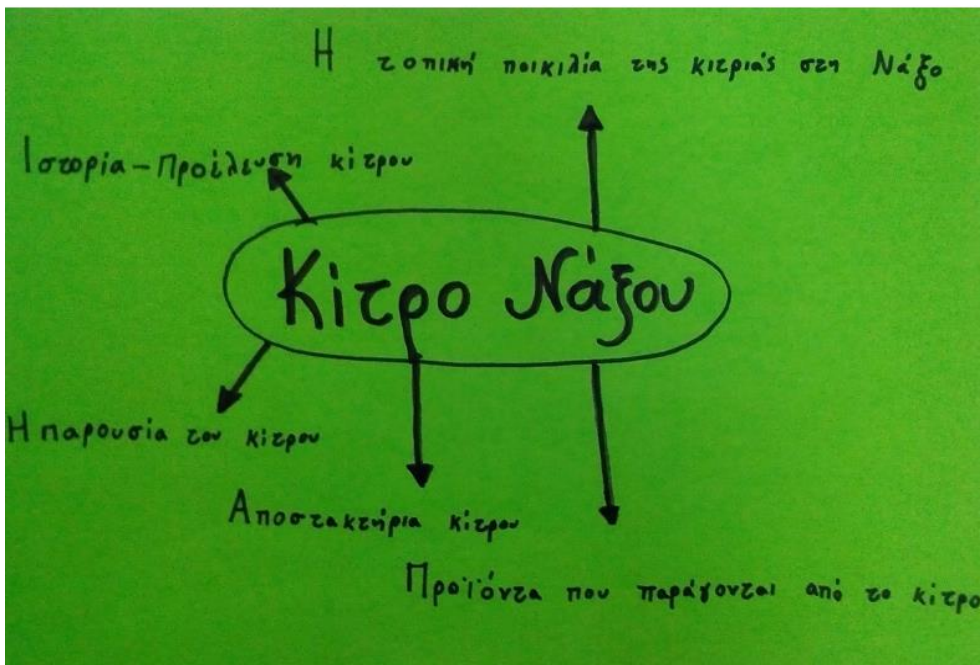 Η τοπική ποικιλία της κιτριάς στη Νάξο
Ιστορία-Προέλευση κίτρου
Κίτρο Νάξου
Η παρουσία του κίτρου
Αποστακτήρια κίτρου
Προϊόντα που παράγονται από το κίτρο